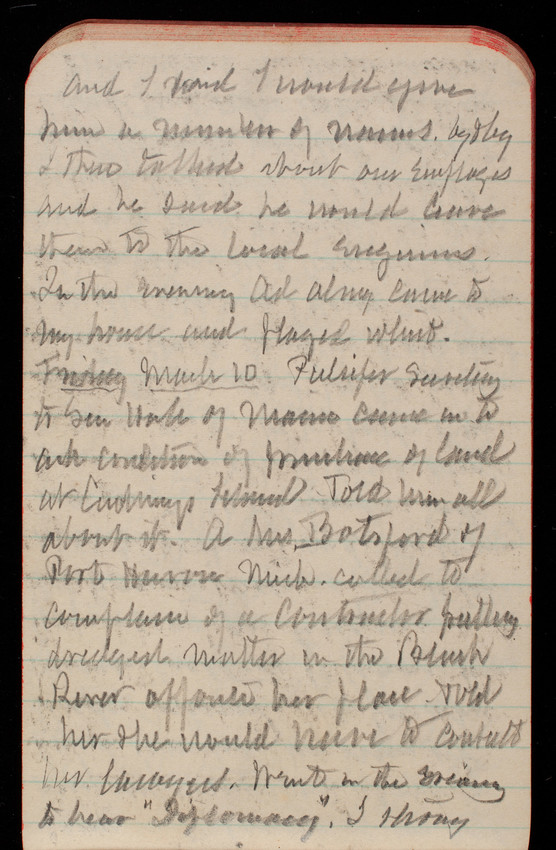 and I said I would give
him a number of names.
I then talked about our Employes
and he said he would leave
them to the local Engineers.
In the evening Ad along came to
my house and played whist.
Friday March 10 Pulsifer Secretary
to Sen Hale of Maine came in to
ask condition of purchase of land
at Cushings Island Told him all
about it. A Mrs. Botsford of
Port Huron Mich. called to
complain of a Contractor putting
dredged matter in the Black
River opposite her place. Told
her she would have to consult
her lawyers. Went in the Evening
to hear "Diplomacy". I strong